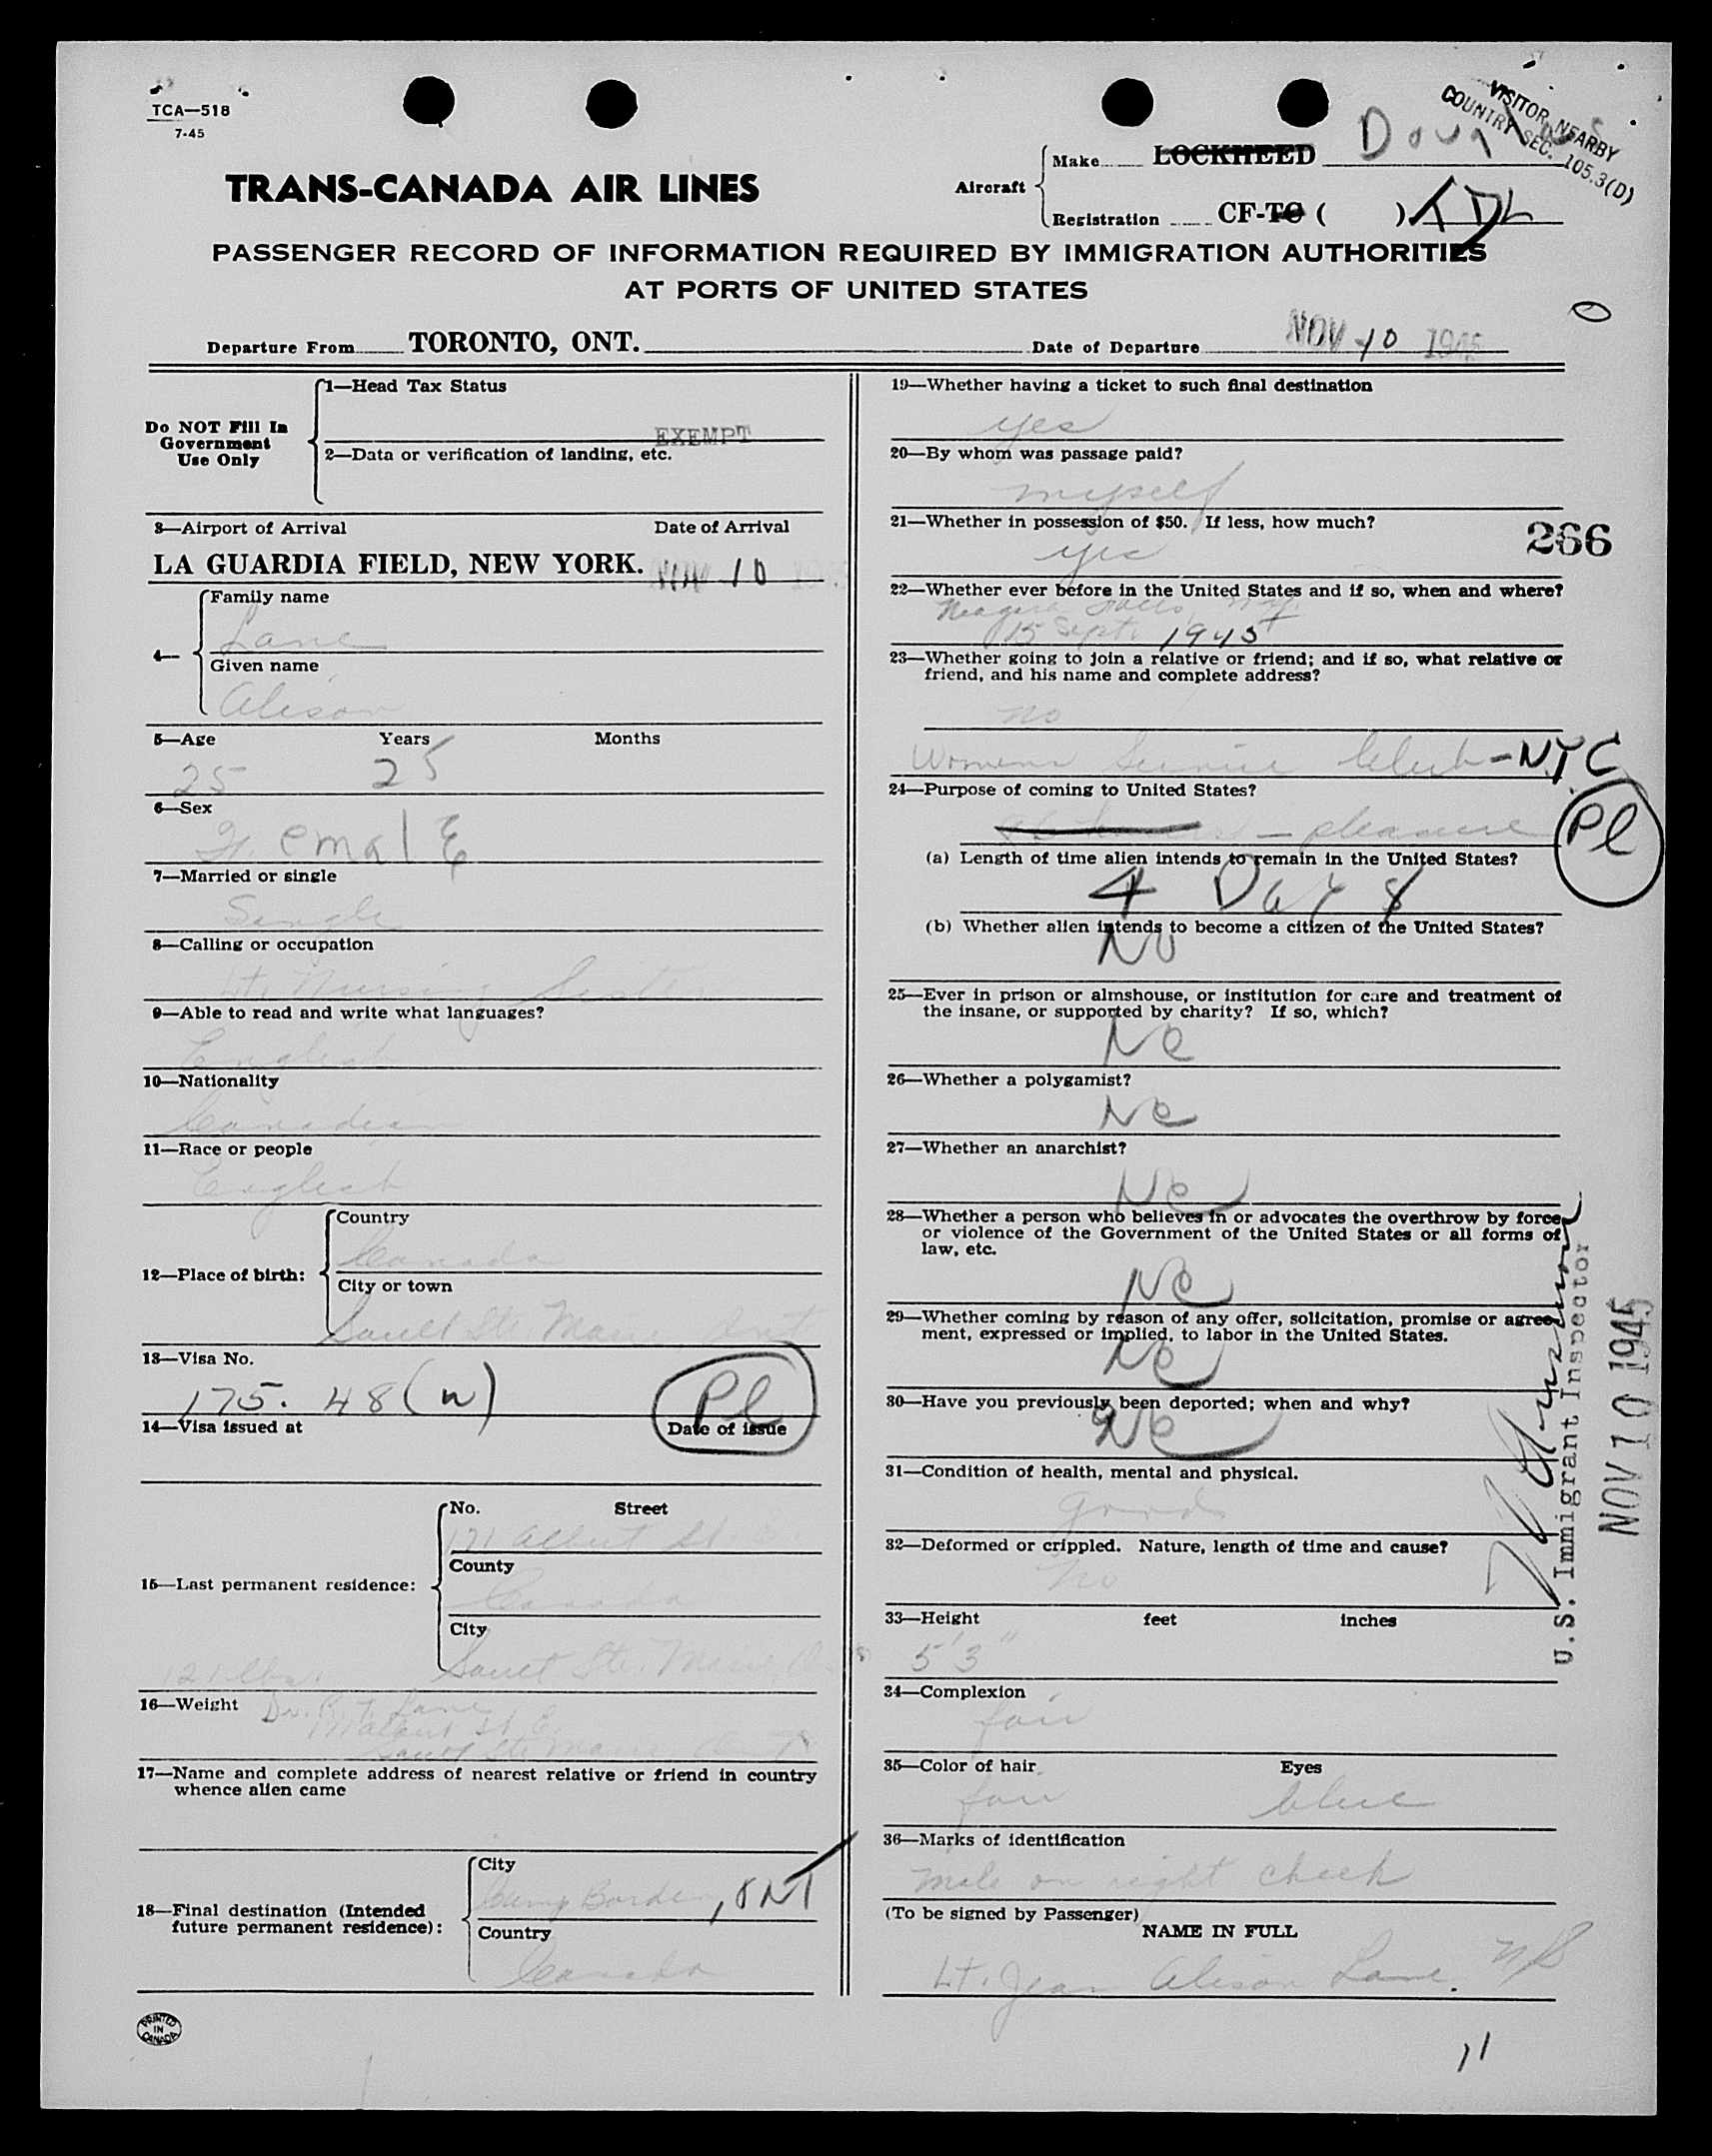 TCA—518
7-45
VISITOR, NEARBY
COUNTRY SEC. 105.3(D)
TRANS-CANADA AIR LINES
Aircraft
Make LOCKHEED
Registration CF-TC ( ) TDL
PASSENGER RECORD OF INFORMATION REQUIRED BY IMMIGRATION AUTHORITIES
AT PORTS OF UNITED STATES
Departure From TORONTO, ONT. Date of Departure NOV 10 1945
Do NOT Fill In
Government
Use Only
1—Head Tax Status
EXEMPT
2—Data or verification of landing, etc.
3—Airport of Arrival Date of Arrival
LA GUARDIA FIELD, NEW YORK. NOV 10
4—
Family name
Lane
Given name
Alison
5—Age Years Months
25 25
6—Sex
Female
7—Married or single
Single
8—Calling or occupation
Lt. Nursing Sister
9—Able to read and write what languages?
English
10—Nationality
Canadian
11—Race or people
English
12—Place of birth:
Country
Canada
City or town
Sault Ste. Marie Ont
13—Visa No.
175. 48 (w) Pl
14—Visa issued at Date of issue
15—Last permanent residence:
No. Street
171 Albert St E.
County
Canada
City
Sault Ste. Marie, Ont
121 lbs.
16—Weight Dr. Lane
St E.
Sault Ste Marie Ont
17—Name and complete address of nearest relative or friend in country
whence alien came
18—Final destination (Intended
future permanent residence):
City
Camp Borden, ONT
Country
Canada
PRINTED
IN
CANADA
19—Whether having a ticket to such final destination
yes
20—By whom was passage paid?
myself
21—Whether in possession of $50. If less, how much?
yes
266
22—Whether ever before in the United States and if so, when and where?
Niagara Falls, N.Y.
15 Sept. 1945
23—Whether going to join a relative or friend; and if so, what relative or
friend, and his name and complete address?
no
Womens Service Club - N.Y.C
24—Purpose of coming to United States?
- pleasure Pl
(a) Length of time alien intends to remain in the United States?
4 Days
(b) Whether alien intends to become a citizen of the United States?
No
25—Ever in prison or almshouse, or institution for care and treatment of
the insane, or supported by charity? If so, which?
No
26—Whether a polygamist?
No
27—Whether an anarchist?
No
28—Whether a person who believes in or advocates the overthrow by force
or violence of the Government of the United States or all forms of
law, etc.
No
29—Whether coming by reason of any offer, solicitation, promise or agree-
ment, expressed or implied, to labor in the United States.
No
30—Have you previously been deported; when and why?
No
31—Condition of health, mental and physical.
good
32—Deformed or crippled. Nature, length of time and cause?
No
33—Height feet inches
5' 3"
34—Complexion
fair
35—Color of hair Eyes
fair blue
36—Marks of identification
mole on right cheek
(To be signed by Passenger)
NAME IN FULL
Lt. Jean Alison Lane. N/S
U.S. Immigrant Inspector
NOV 10 1945
11